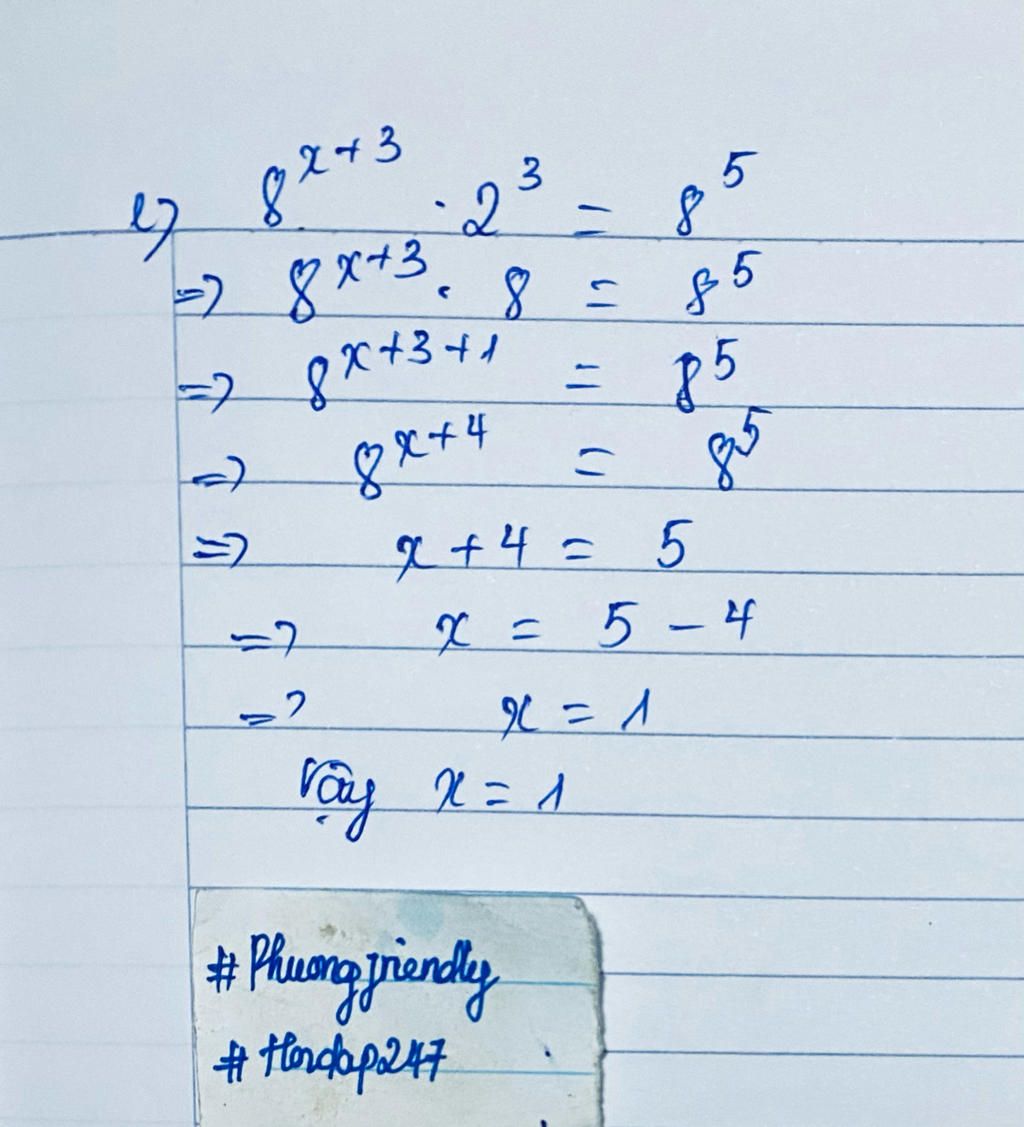 e) 8^{x+3} . 2^3 = 8^5
=> 8^{x+3} . 8 = 8^5
=> 8^{x+3+1} = 8^5
=> 8^{x+4} = 8^5
=> x + 4 = 5
=> x = 5 - 4
=> x = 1
Vậy x = 1
# Phuongfriendly
# Hoidap247